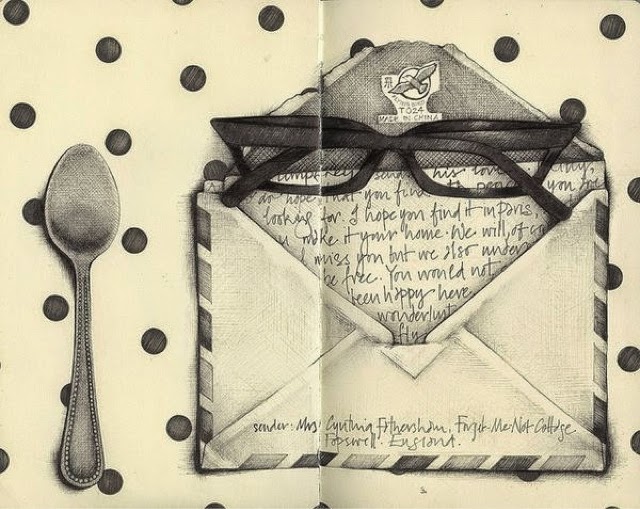 T024
MADE IN CHINA
do hope that you find the you
looking for. I hope you find it in paris,
make it your home. We will, of
miss you but we also under
be free. You would not
been happy here.
wonderlust
fly
sender: Mrs Cynthia Fothershom, Forget-Me-Not Cottage
Popswell. England.